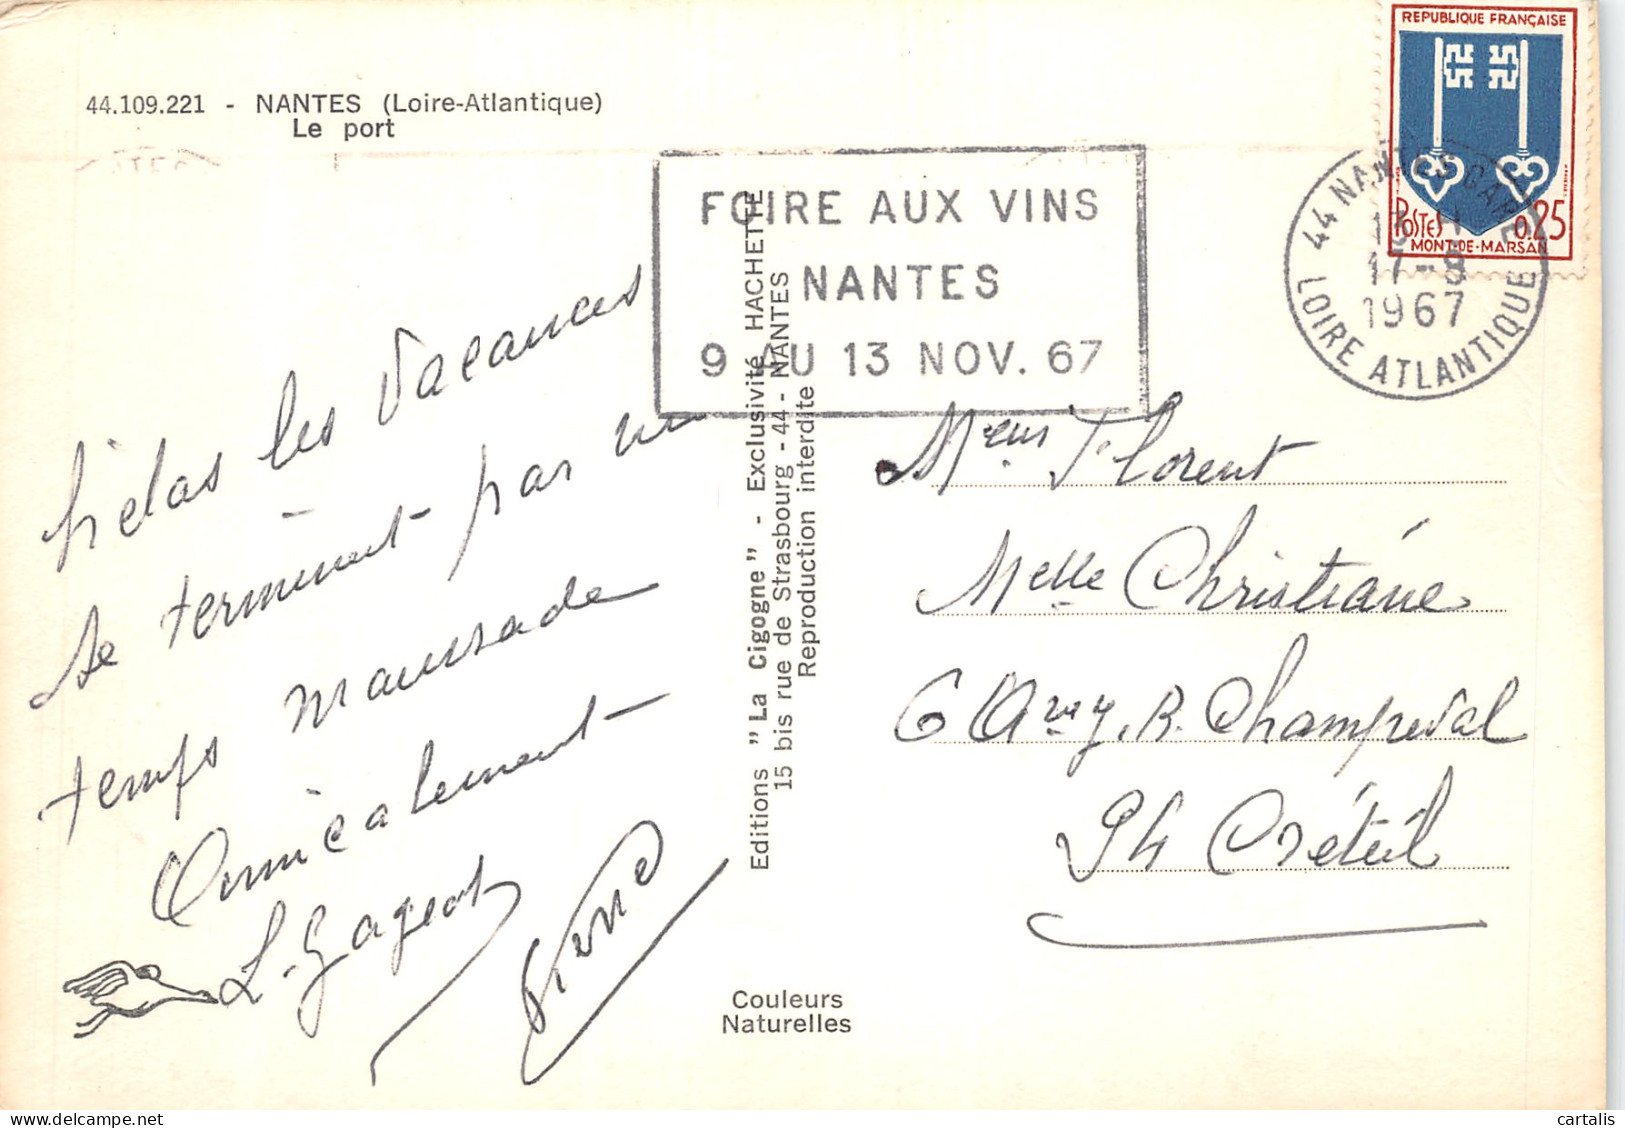 44.109.221 - NANTES (Loire-Atlantique)
Le port
REPUBLIQUE FRANÇAISE
POSTES 0.25
MONT-DE-MARSAN
FOIRE AUX VINS
NANTES
9 AU 13 NOV. 67
44 NANTES GARE
17-8
1967
LOIRE ATLANTIQUE
hélas les vacances
se terminent par un
temps maussade
Amicalement
L. Gageot
Pierre
Editions "La Cigogne" - Exclusivité HACHETTE
15 bis rue de Strasbourg - 44 - NANTES
Reproduction interdite
Couleurs
Naturelles
Florent
Melle Christiane
6 R. Champeval
94 Créteil
cartalis